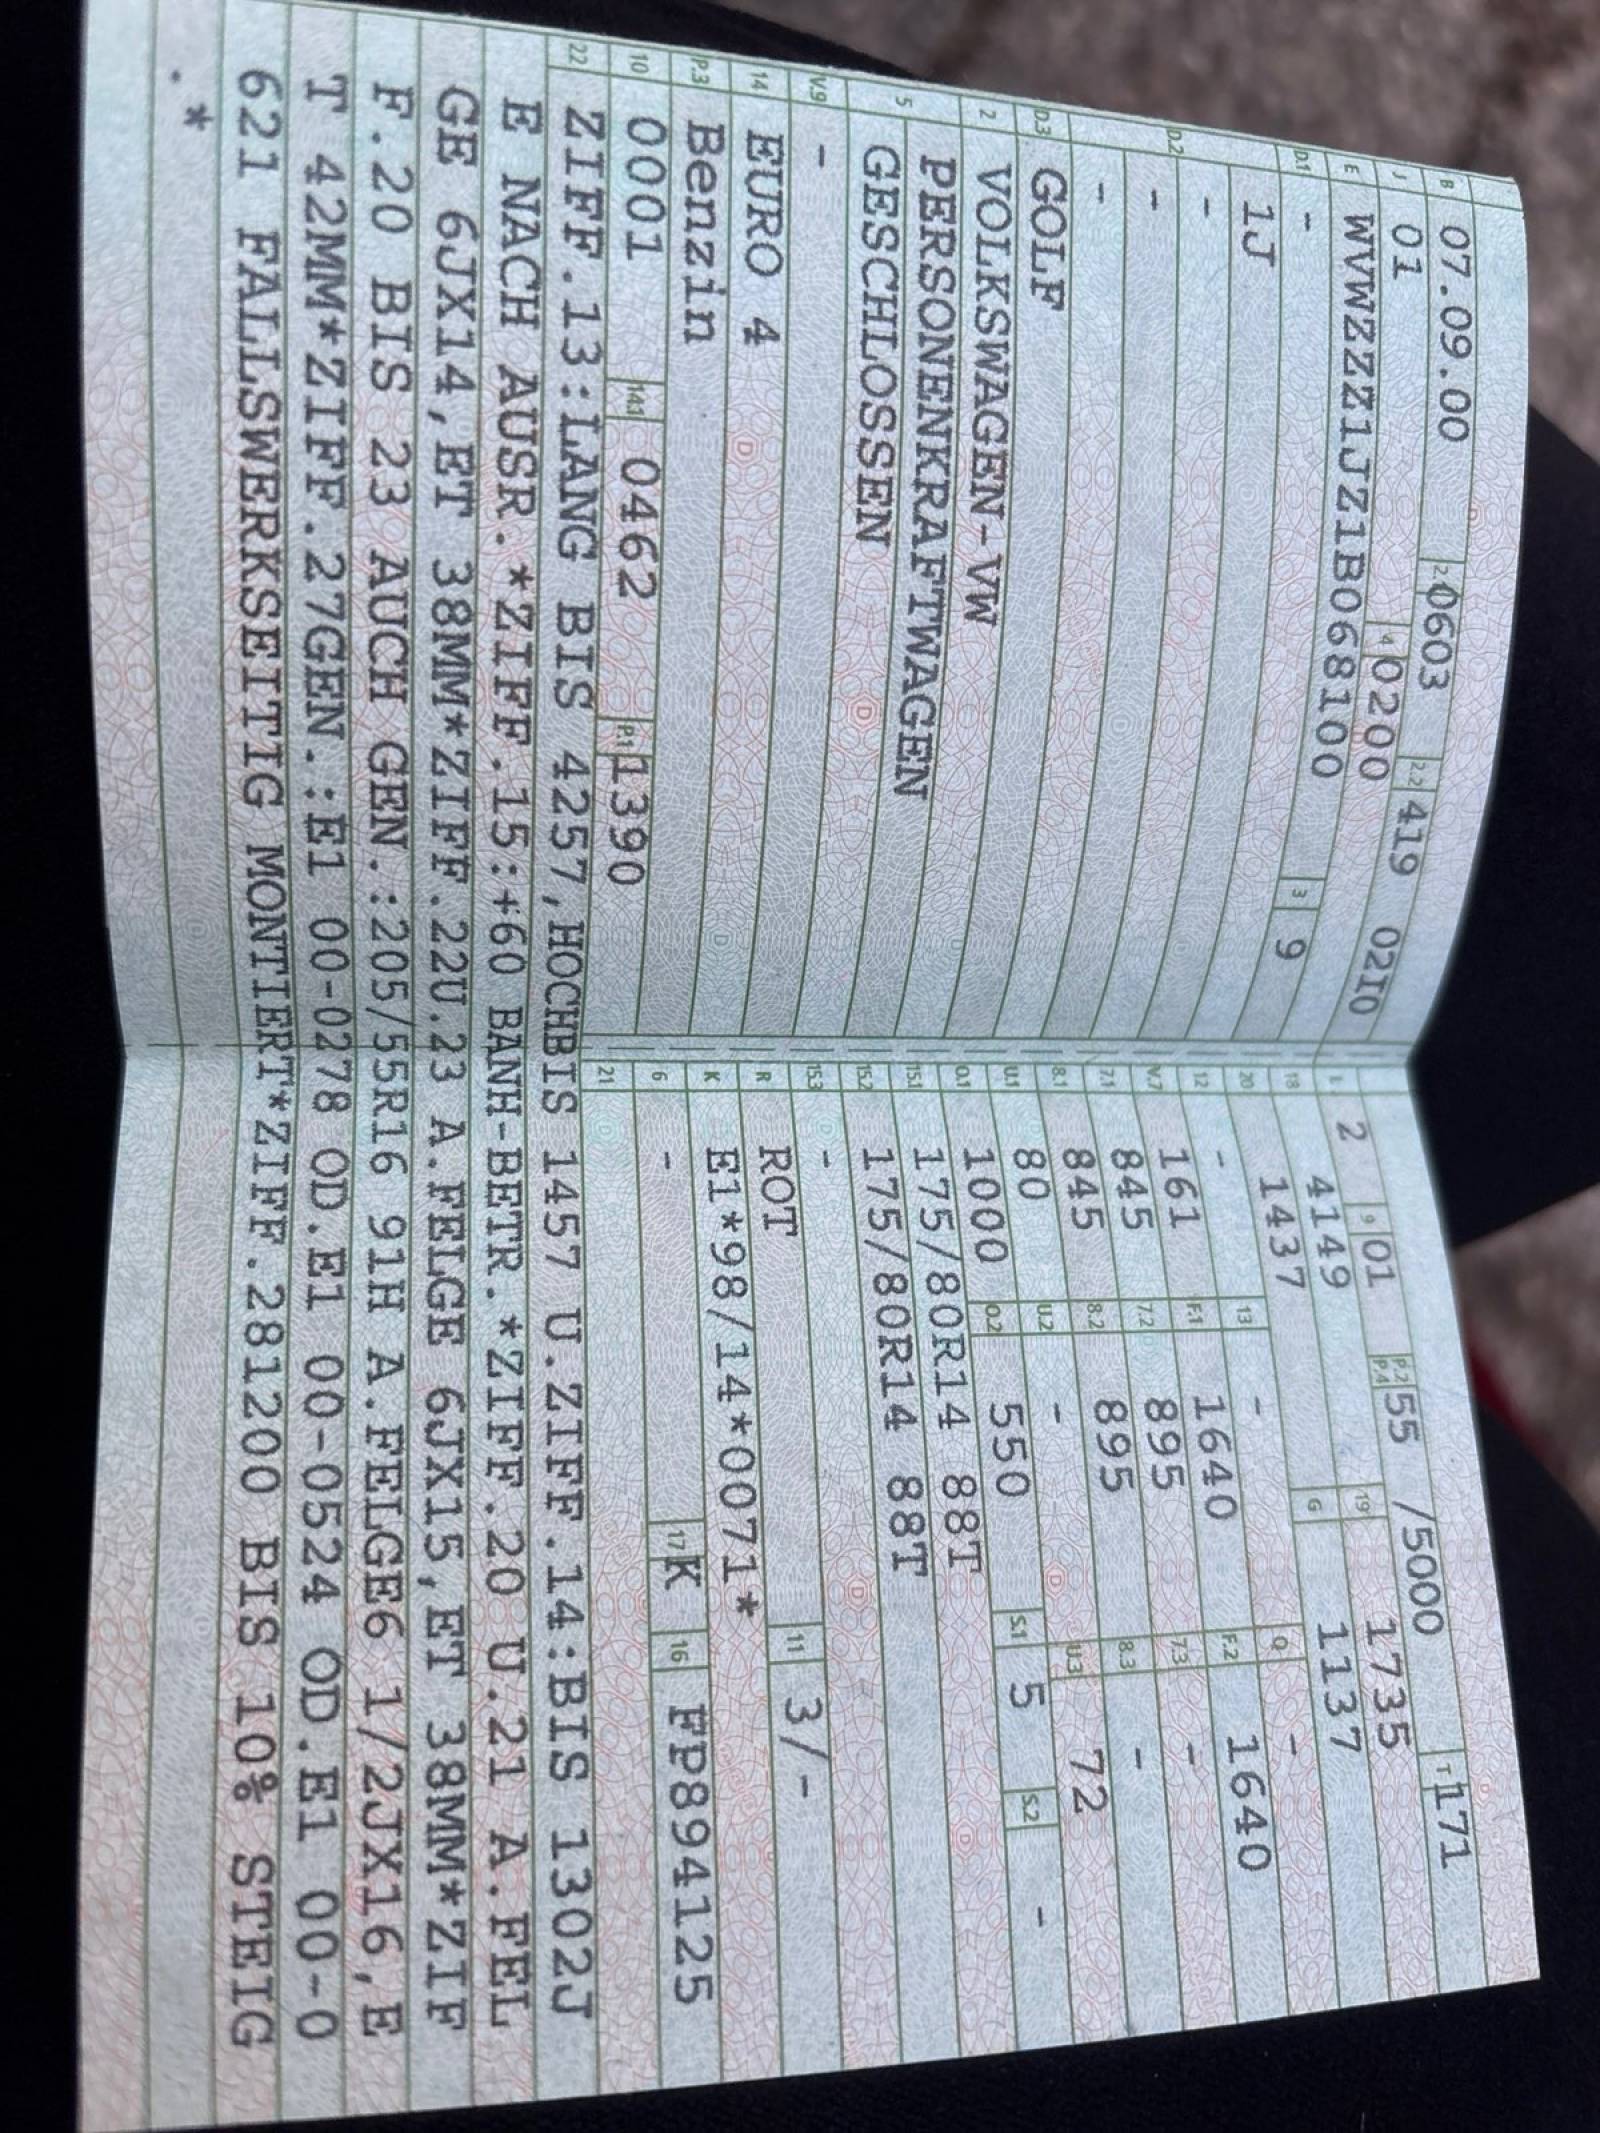 B 07.09.00 2.1 0603 2.2 419 0210
J 01 4 0200
E WVWZZZ1JZ1B068100 3 9
D.1 -
1J
D.2 -
-
-
D.3 GOLF
2 VOLKSWAGEN-VW
5 PERSONENKRAFTWAGEN
GESCHLOSSEN
V.9 -
14 EURO 4
P.3 Benzin
10 0001 14.1 0462 P.1 1390
L 2 9 01 P.2 P.4 55 /5000 T 171
18 4149 19 1735
20 1437 G 1137
12 - 13 - Q -
V.7 161 F.1 1640 F.2 1640
7.1 845 7.2 895 7.3 -
8.1 845 8.2 895 8.3 -
U.1 80 U.2 - U.3 72
O.1 1000 O.2 550 S.1 5 S.2 -
15.1 175/80R14 88T
15.2 175/80R14 88T
15.3 -
R ROT 11 3/-
K E1*98/14*0071*
6 - 17 K 16 FP894125
21
22 ZIFF.13:LANG BIS 4257,HOCHBIS 1457 U.ZIFF.14:BIS 1302J
E NACH AUSR.*ZIFF.15:+60 BANH-BETR.*ZIFF.20 U.21 A.FEL
GE 6JX14,ET 38MM*ZIFF.22U.23 A.FELGE 6JX15,ET 38MM*ZIF
F.20 BIS 23 AUCH GEN.:205/55R16 91H A.FELGE6 1/2JX16,E
T 42MM*ZIFF.27GEN.:E1 00-0278 OD.E1 00-0524 OD.E1 00-0
621 FALLSWERKSEITIG MONTIERT*ZIFF.281200 BIS 10% STEIG
.*